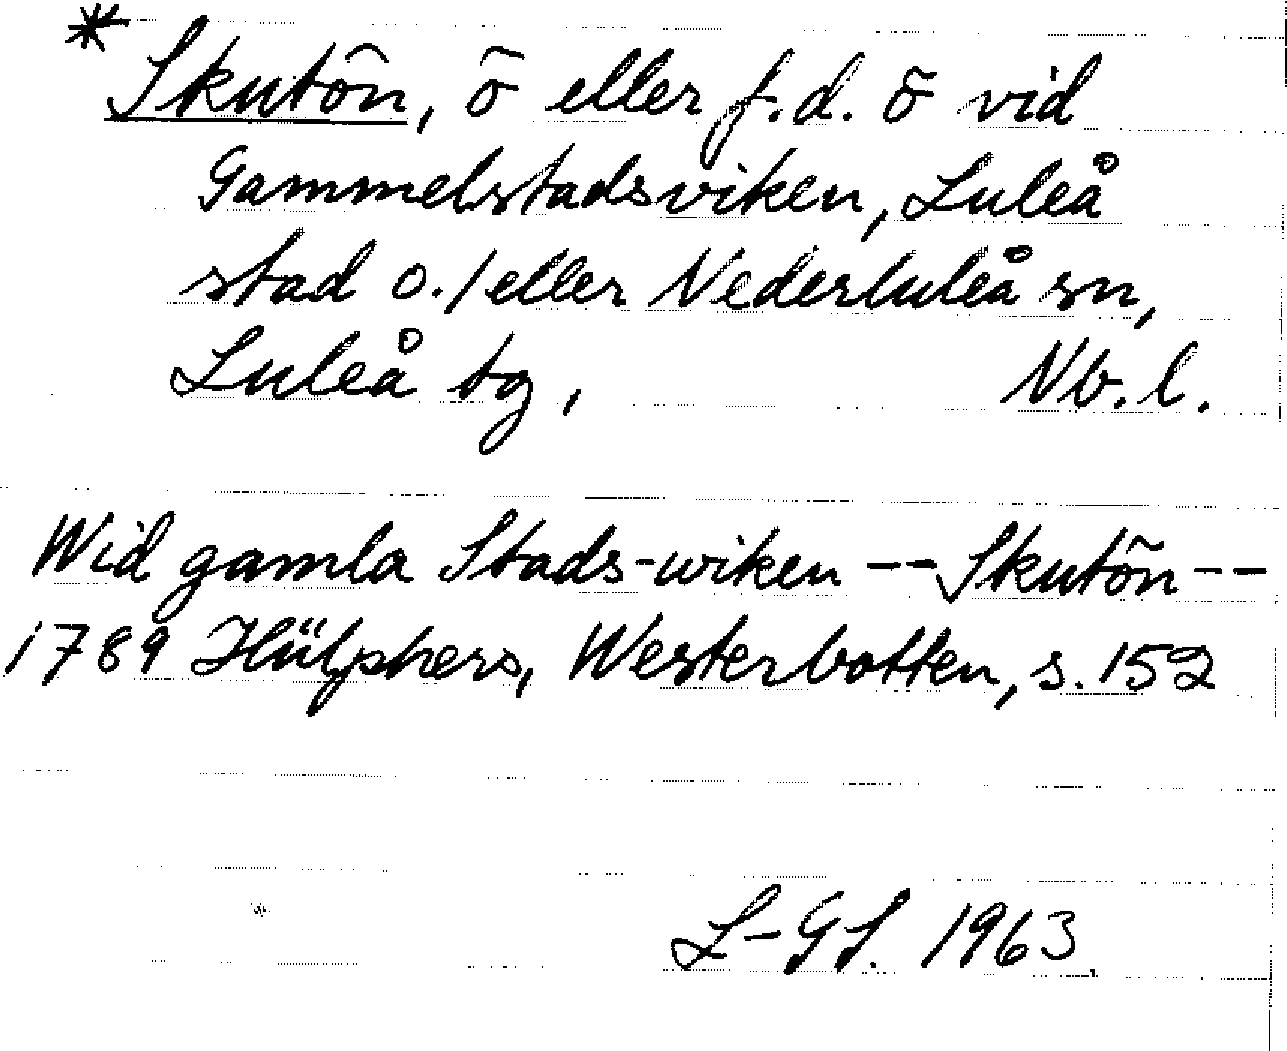 * Skutön, ö eller f.d. ö vid
Gammelstadsviken, Luleå
stad o./eller Nederluleå sn,
Luleå tg, Nb.l.
Wid gamla Stads-wiken -- Skutön --
1789 Hülphers, Westerbotten, s. 152
L-GS. 1963.